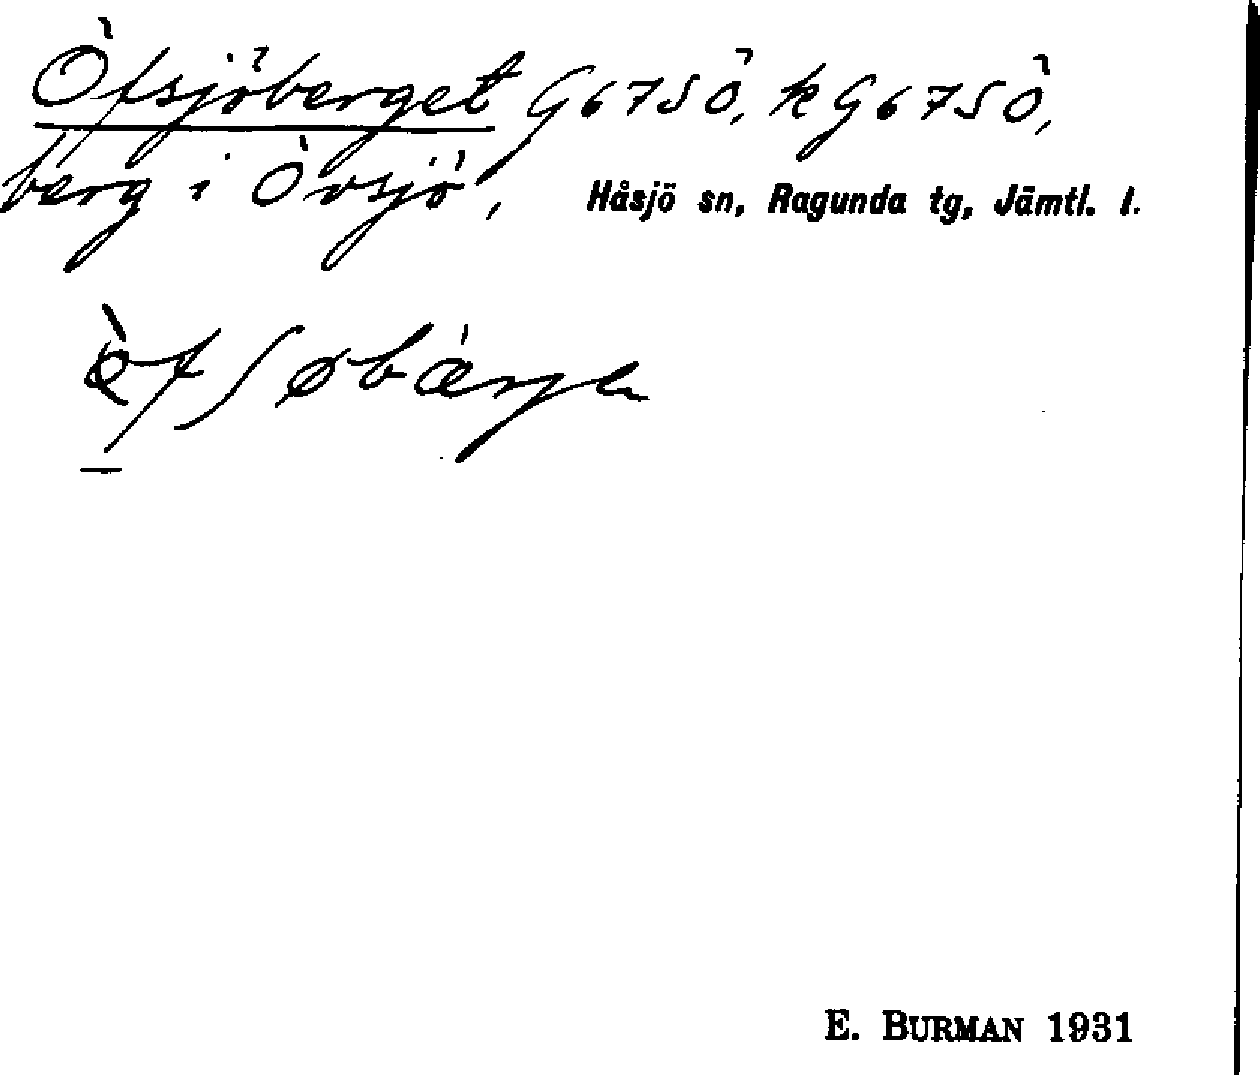 Öfsjöberget G67SÖ, kG67SÖ,
berg i Övsjö, Håsjö sn, Ragunda tg, Jämtl. l.
E. BURMAN 1931